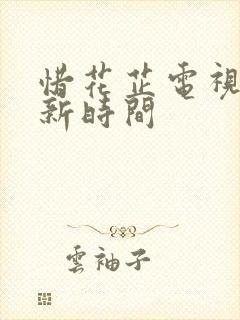 惜花芷電視
新時間
雲袖子